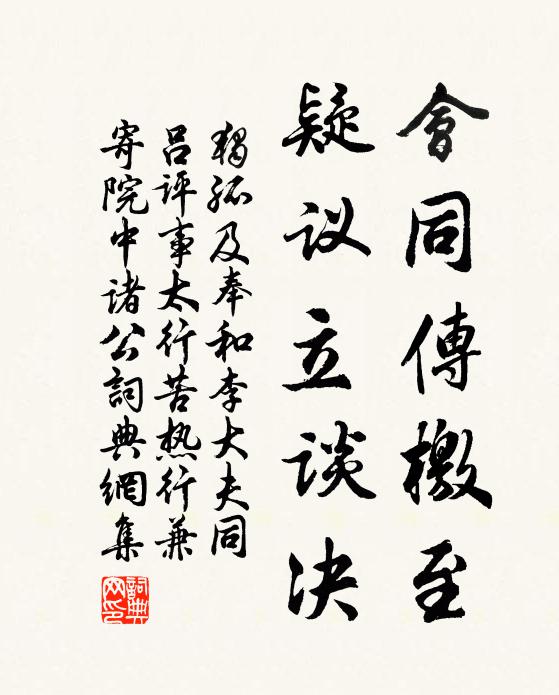 會同傳檄至
疑议立谈决
獨孤及奉和李大夫同
吕评事太行苦热行兼
寄院中诸公詞典網集
詞典网印